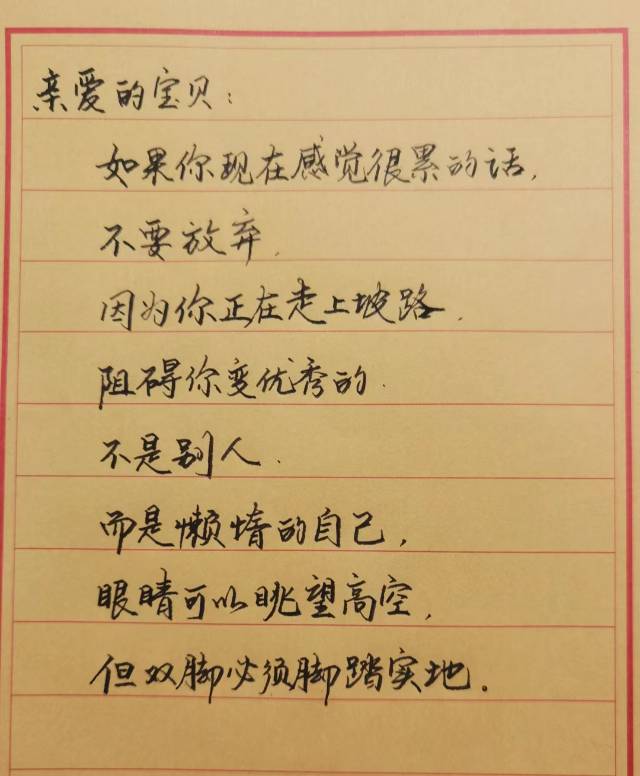 亲爱的宝贝：
如果你现在感觉很累的话，
不要放弃，
因为你正在走上坡路，
阻碍你变优秀的，
不是别人，
而是懒惰的自己，
眼睛可以眺望高空，
但双脚必须脚踏实地。